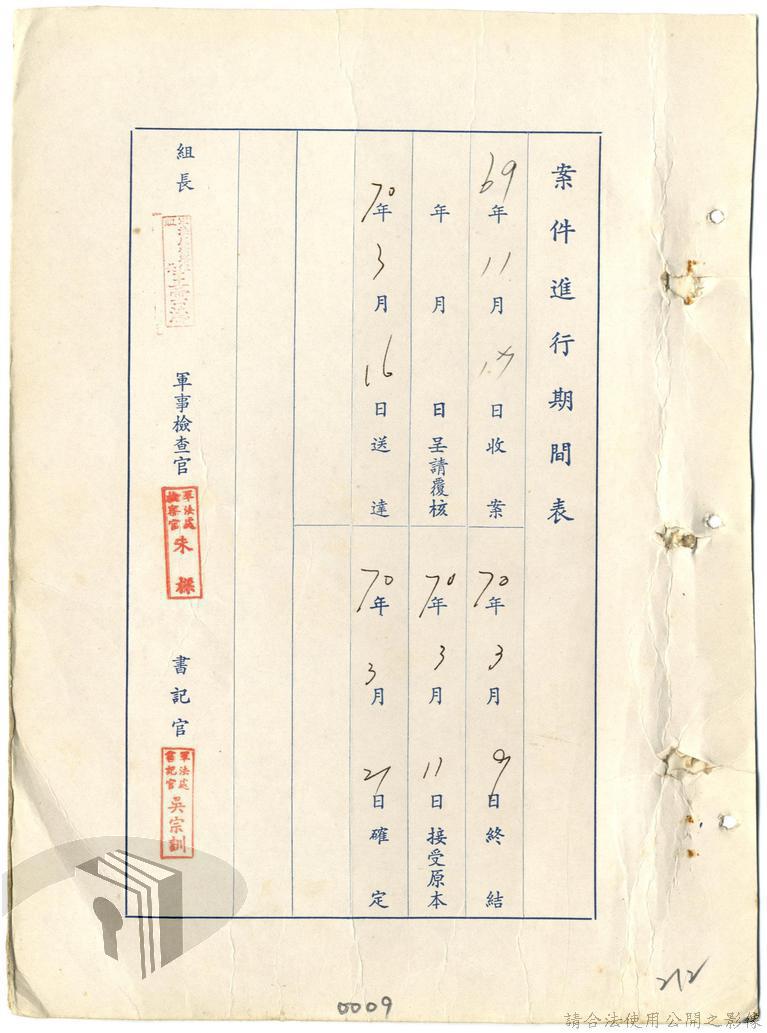 案件進行期間表
69年11月日收案
70年3月9日終結
年月日呈請覆核
70年3月11日接受原本
70年3月16日送達
70年3月21日確定
組長
軍事檢查官
軍法處
檢察官
朱
書記官
軍法處
書記官
吳宗訓
212
0009
請合法使用公開之影像